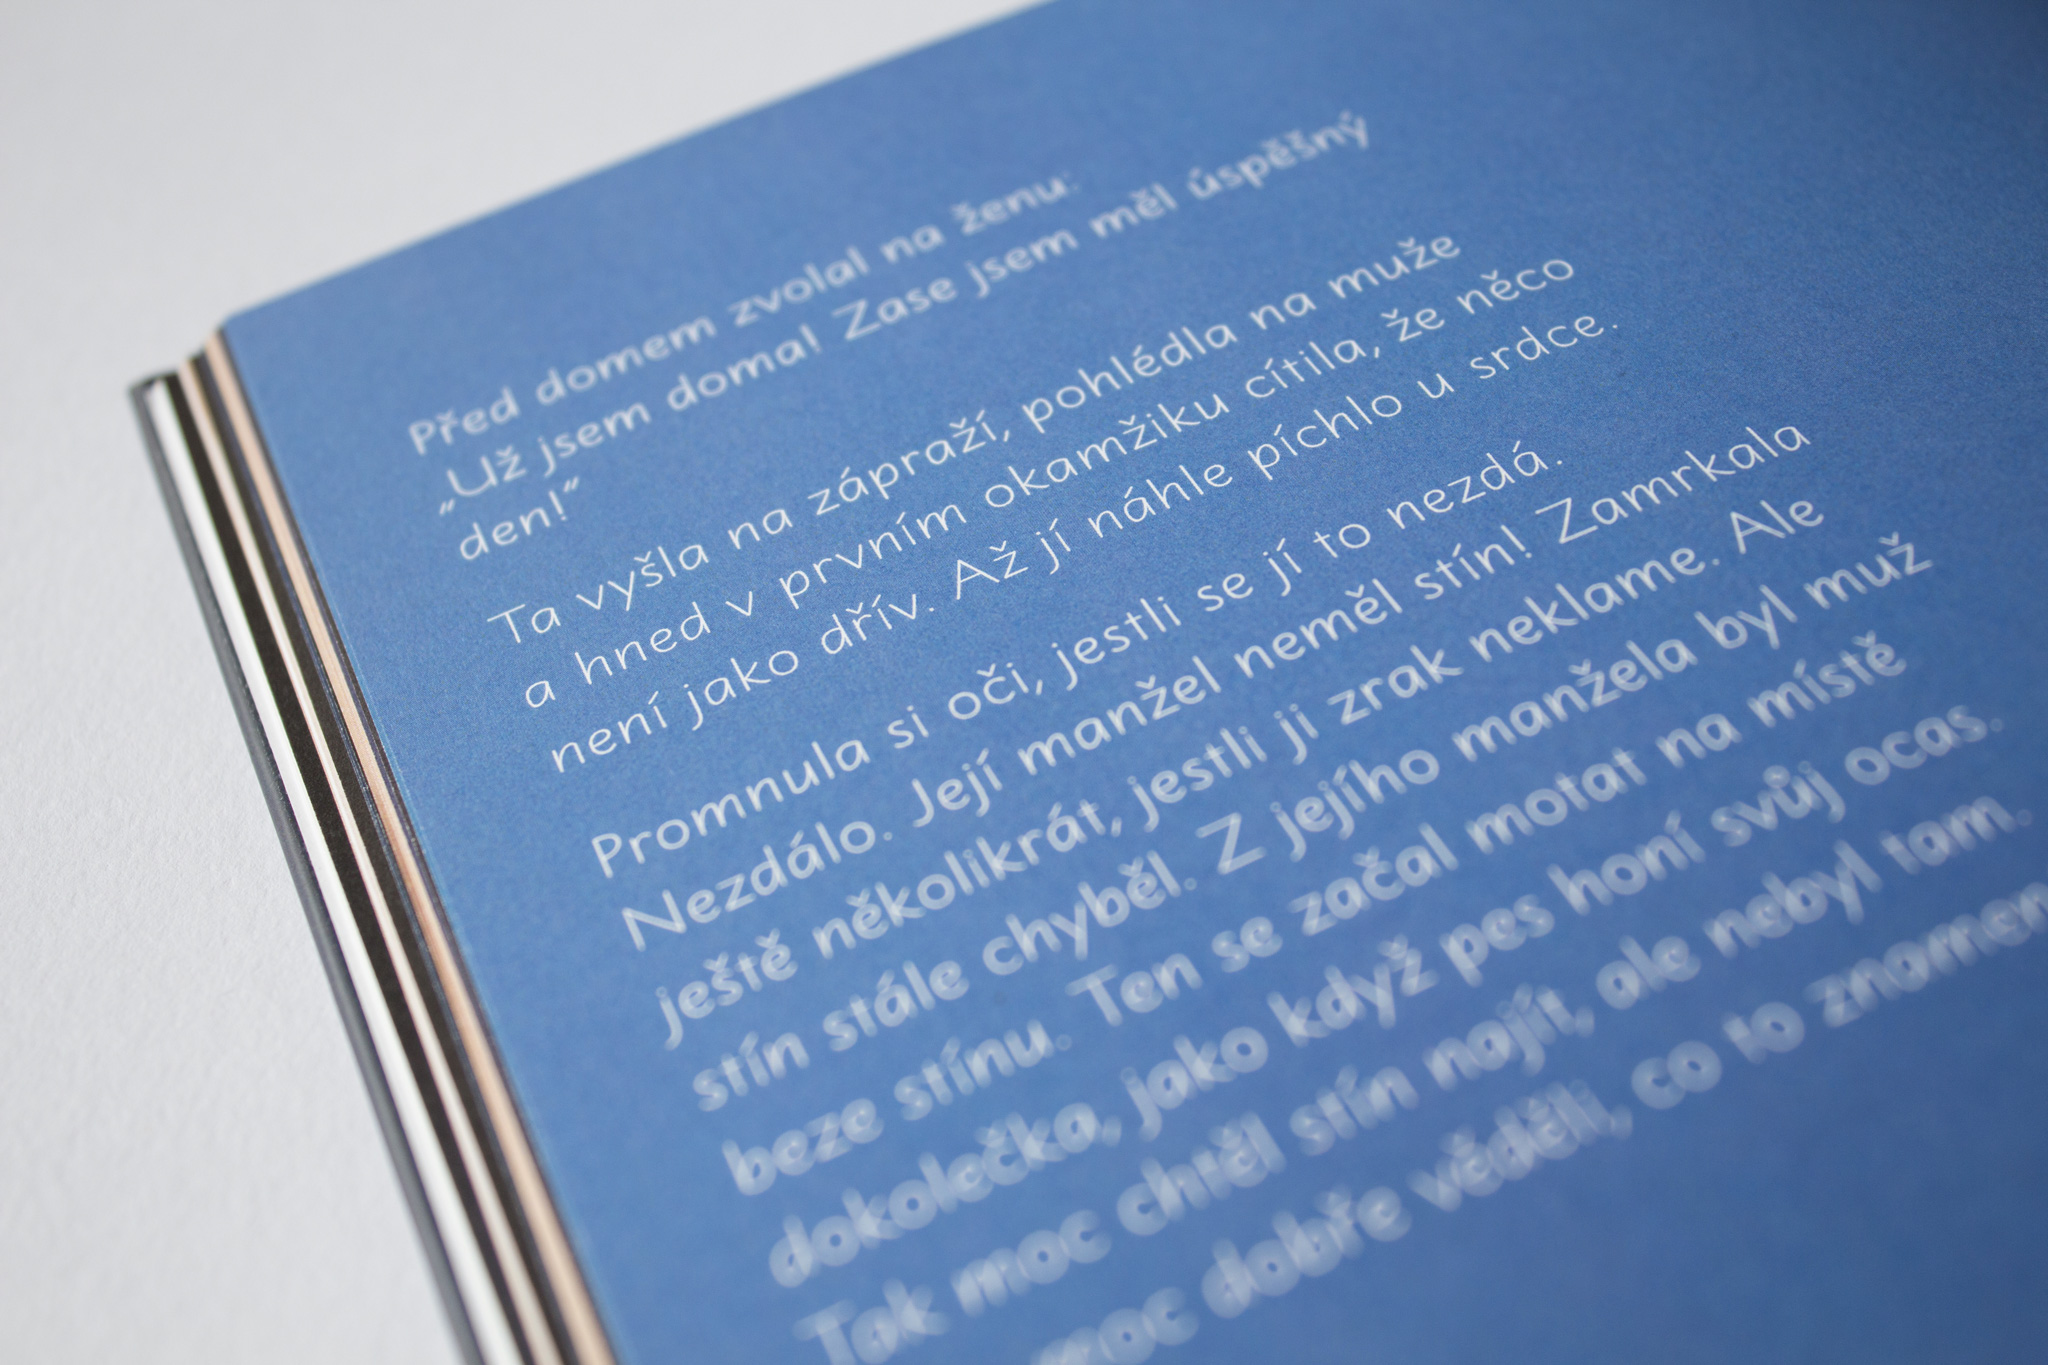 Před domem zvolal na ženu:
„Už jsem doma! Zase jsem měl úspěšný
den!“
Ta vyšla na zápraží, pohlédla na muže
a hned v prvním okamžiku cítila, že něco
není jako dřív. Až jí náhle píchlo u srdce.
Promnula si oči, jestli se jí to nezdá.
Nezdálo. Její manžel neměl stín! Zamrkala
ještě několikrát, jestli ji zrak neklame. Ale
stín stále chyběl. Z jejího manžela byl muž
beze stínu. Ten se začal motat na místě
dokolečka, jako když pes honí svůj ocas.
Tak moc chtěl stín najít, ale nebyl tam.
moc dobře věděli, co to znamen